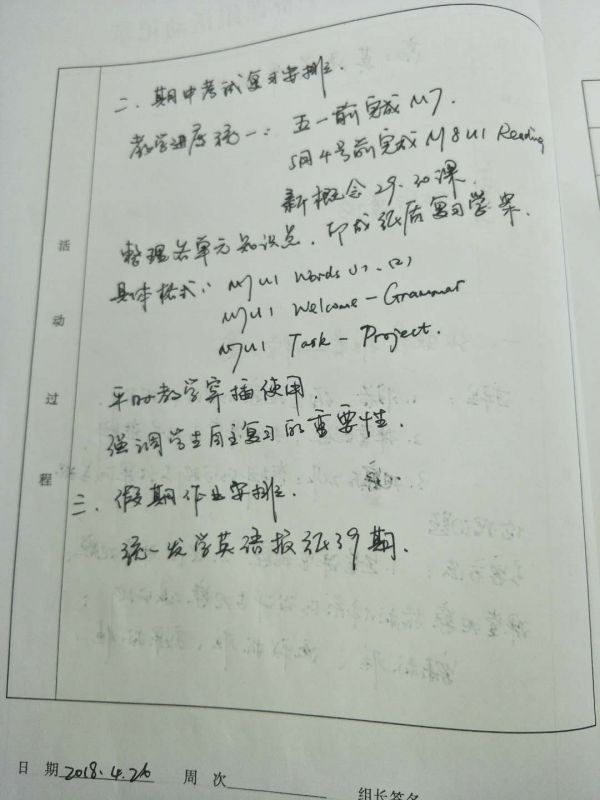 二、期中考试复习安排.
教学进度统一：五一前完成M7.
5月4号前完成M8U1 Reading
新概念29.30课.
整理各单元知识点,印成纸质复习学案.
具体格式： M7U1 Words (1). (2)
M7U1 Welcome - Grammar
M7U1 Task - Project.
平时教学穿插使用.
强调学生自主复习的重要性.
三、假期作业安排.
统一发学英语报纸39期.
活动过程
日 期 2018.4.26 周 次
组长签名